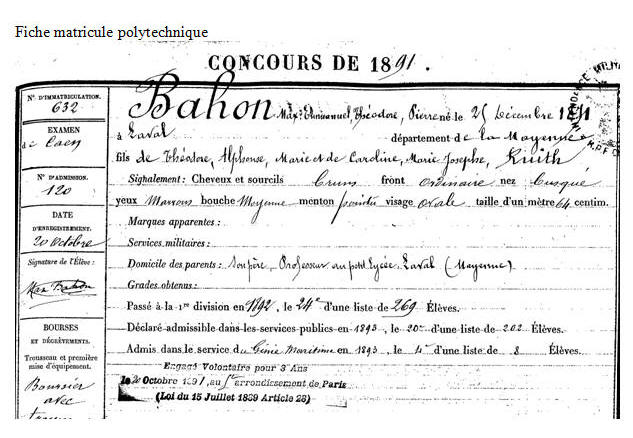 Fiche matricule polytechnique
CONCOURS DE 1891.
N° D'IMMATRICULATION.
632
EXAMEN
de Caen
N° D'ADMISSION.
120
DATE
D'ENREGISTREMENT.
20 octobre
Signature de l'Élève:
Max Bahon
BOURSES
ET DÉCRÈTEMENTS.
Trousseau et première
mise d'équipement.
Boursier
avec
Bahon Max, Emmanuel, Théodore, Pierre né le 25 Décembre
à Laval département de la Mayenne
fils de Théodore, Alphonse, Marie et de Caroline, Marie Josephe, Knith
Signalement: Cheveux et sourcils Bruns front ordinaire nez Busqué
yeux Marrons bouche Moyenne menton pointu visage ovale taille d'un mètre 64 centim.
Marques apparentes:
Services militaires:
Domicile des parents: Son père, Professeur au petit Lycée, Laval (Mayenne)
Grades obtenus:
Passé à la 1re division en 1892, le 24e d'une liste de 269 Élèves.
Déclaré admissible dans les services publics en 1893, le 20me d'une liste de 202 Élèves.
Admis dans le service du Génie Maritime en 1893, le 4e d'une liste de 8 Élèves.
Engagé Volontaire pour 3 Ans
le 20 Octobre 1891, au 5e arrondissement de Paris
(Loi du 15 Juillet 1889 Article 28)